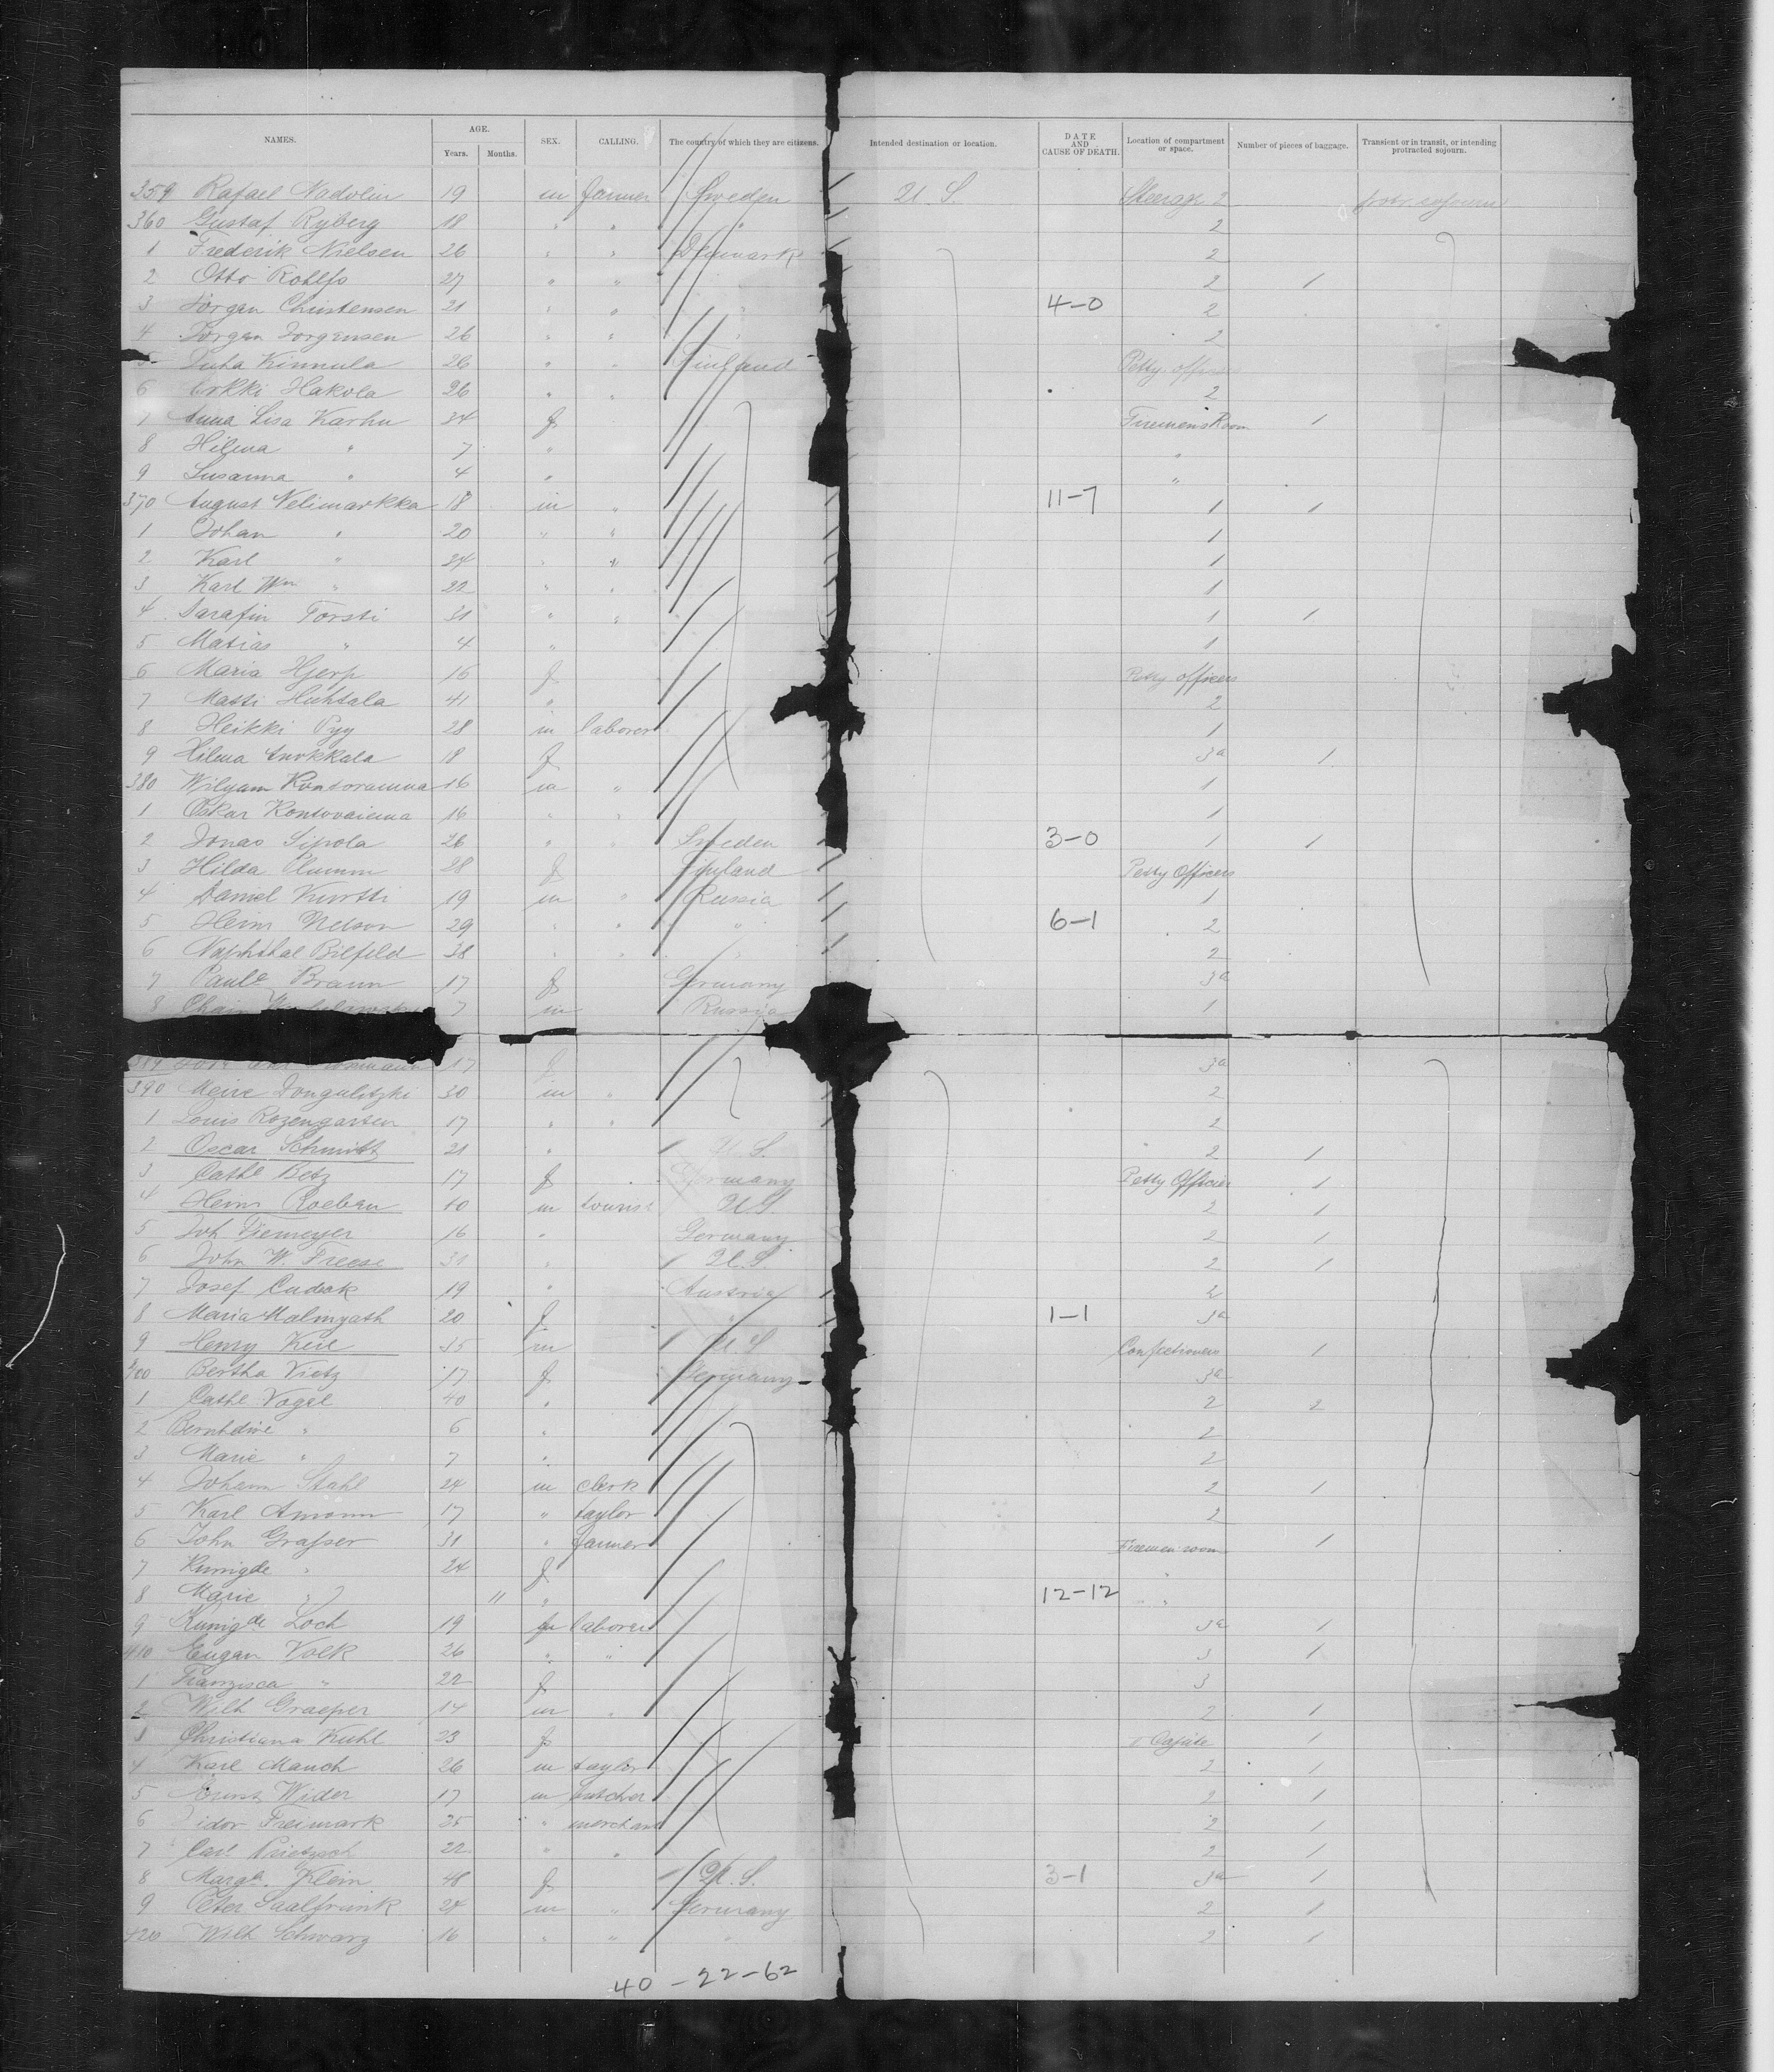 NAMES. AGE. Years. Months. SEX. CALLING. The country of which they are citizens. Intended destination or location. DATE AND CAUSE OF DEATH. Location of compartment or space. Number of pieces of baggage. Transient or in transit, or intending protracted sojourn.
359 Rafael Nadolin 19 m farmer Sweden U. S. Steerage 2 protr. sojourn
360 Gustaf Ryberg 18 " " " 2
1 Frederik Nielsen 26 " " Denmark 2
2 Otto Rohlfs 27 " " 2 1
3 Jörgen Christensen 21 " " " 4-0 2
4 Jörgen Jorgensen 26 " " 2
5 Juha Kinnula 26 " " Finland Petty officers
6 Erkki Hakola 26 " " 2
7 Anna Lisa Karhu 34 f Firemens Room 1
8 Hilma " 7 " "
9 Susanna " 4 " "
370 August Nelimarkka 18 m " 11-7 1 1
1 Johan " 20 " " 1
2 Karl " 34 " " 1
3 Karl Wm " 22 " " 1
4 Sarafin Forsti 31 " " 1 1
5 Matias " 4 " 1
6 Maria Hjerp 16 f Petty officers
7 Matti Huhtala 41 " 2
8 Heikki Pyy 28 m laborer 1
9 Hilma 18 f 3a 1
380 Wilyam 16 m " 1
1 Oskar 16 " " 1
2 Jonas Sipola 26 " " Sweden 3-0 1 1
3 Hilda 28 f Finland Petty Officers
4 Daniel Kurtti 19 m " Russia 1
5 Heinr Nelson 29 " " " 6-1 2
6 Naphthal Bilfeld 38 " " " 2
7 Paula Braun 17 f Germany 3a
8 Chaim 7 m Russia 1
17 f 3a
390 Meire 30 m " 2
1 Louis Rozengarten 17 " " 2
2 Oscar Schmidt 21 " U. S. 2 1
3 Cathe Betz 17 f Germany Petty Officers 1
4 Heinr Roeben 10 m tourist U. S. 2 1
5 Joh Tiemeyer 16 " Germany 2 1
6 John W. Freese 31 " U. S. 2 1
7 Josef Cudok 19 " Austria 2
8 Maria Malmgath 20 f " 1-1 3a
9 Henry Keil 35 m U. S. Confectioners 1
400 Bertha Vietz 17 f Germany 3a
1 Cathe Vogel 40 " 2 2
2 Bernhdine " 6 " 2
3 Marie " 7 " 2
4 Johann Stahl 24 m clerk 2 1
5 Karl Amann 17 " taylor 2
6 John Grasser 31 " farmer Firemen room 1
7 Kunigde " 24 f "
8 Marie " 11 " 12-12 "
9 Kunigde Loch 19 laborer 3a 1
410 Eugan Volk 26 " " 3 1
1 Franzisca " 22 f 3
2 Wilh Graeper 14 m " 2 1
3 Christiana Kuhl 23 f 1
4 Karl Mauch 26 m taylor 2 1
5 Ernst Wider 17 m butcher 2 1
6 Isidor Freimark 25 " merchant 2 1
7 Carl 22 " " 2 1
8 Marga. Klein 48 f U. S. 3-1 3a 1
9 Peter Saalfrank 24 m " Germany 2 1
420 Wilh Schwarz 16 " " " 2 1
40-22-62